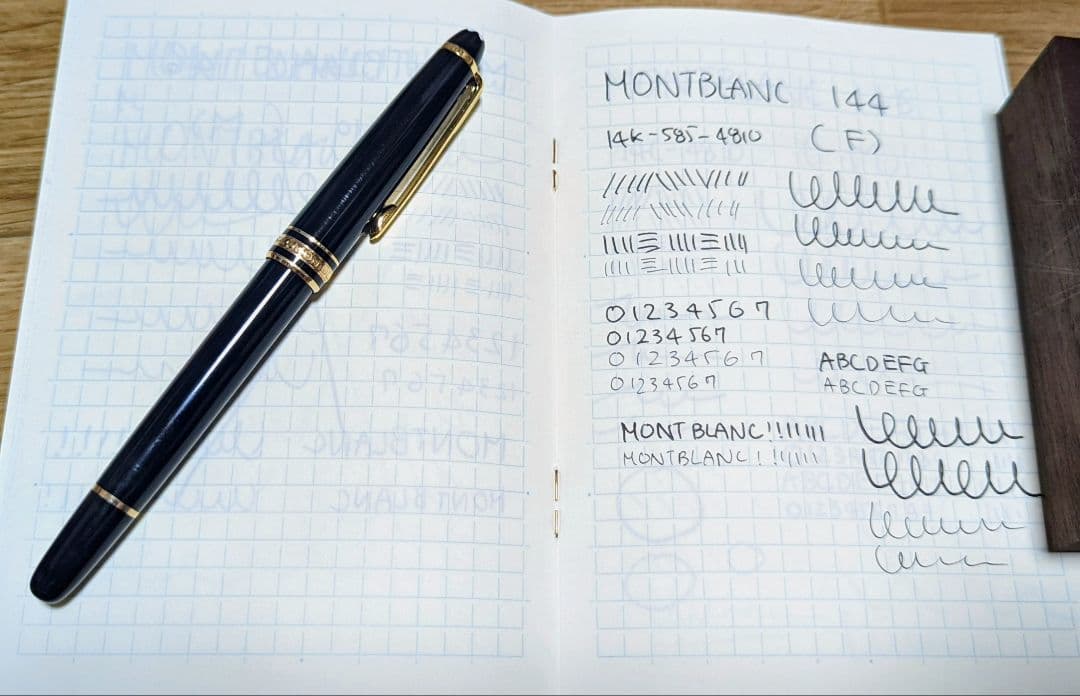 MONTBLANC 144
14K-585-4810 (F)
01234567
01234567
01234567
01234567
ABCDEFG
ABCDEFG
MONTBLANC!!
MONTBLANC!!